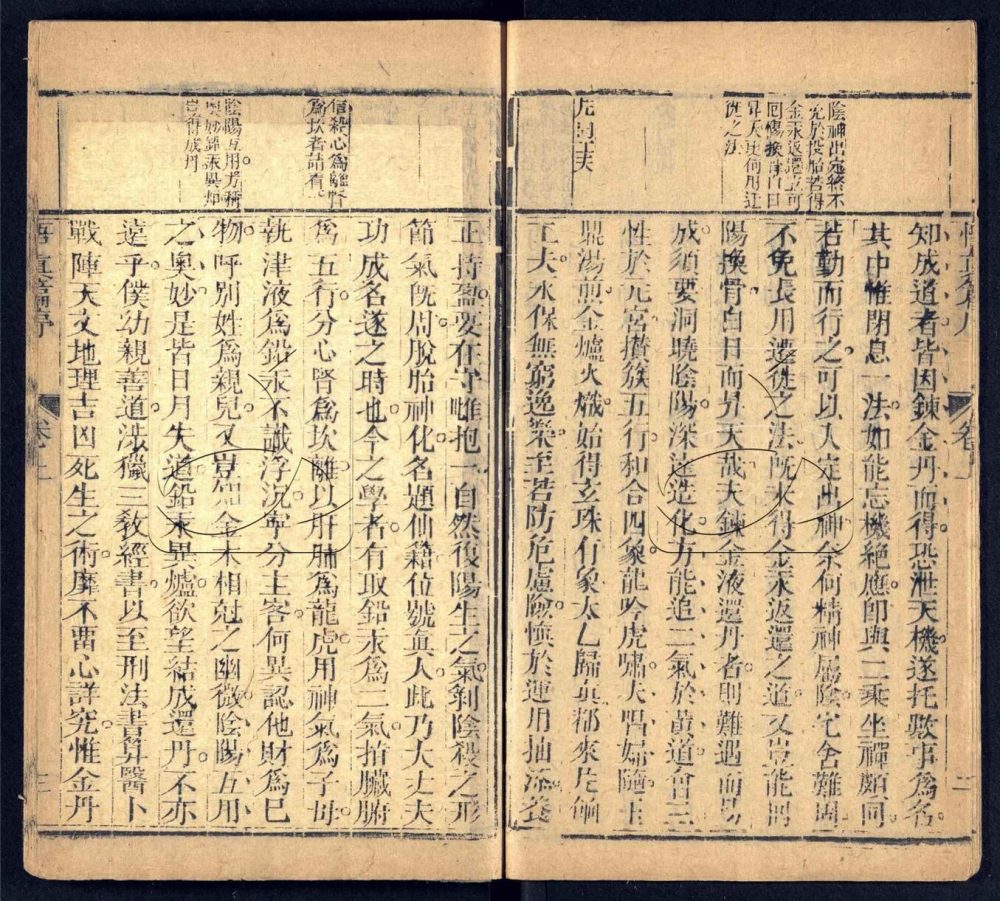 陰神出定終不
究於投胎若得
金汞返還立可
回陽換骨白日
昇天更何用遷
徙之法
知成道者皆因鍊金丹而得恐泄天機遂托數事為名
其中惟閉息一法如能忘機絕慮即與二乘坐禪頗同
若勤而行之可以入定出神奈何精神屬陰宅舍難固
不免長用遷徙之法既未得金汞返還之道又豈能回
陽換骨白日而昇天哉夫鍊金液還丹者則難遇而易
成須要洞曉陰陽深達造化方能追二氣於黃道會三
性於元宮攢簇五行和合四象龍吟虎嘯夫唱婦隨玉
鼎湯煎金爐火熾始得玄珠有象太乙歸真都來片餉
工夫永保無窮逸樂至若防危慮險慎於運用抽添養
信殺心為離腎
為坎者請看
陰陽互用方稱
奧妙鉛汞異爐
豈得成丹
正持盈要在守雌抱一自然復陽生之氣剝陰殺之形
節氣既周脫胎神化名題仙籍位號眞人此乃大丈夫
功成名遂之時也今之學者有取鉛汞為二氣指臟腑
為五行分心腎為坎離以肝肺為龍虎用神氣為子母
執津液為鉛汞不識浮沉寧分主客何異認他財為己
物呼別姓為親兒又豈知金木相尅之幽微陰陽互用
之奧妙是皆日月失道鉛汞異爐欲望結成還丹不亦
遠乎僕幼親善道涉獵三教經書以至刑法書算醫卜
戰陣天文地理吉凶死生之術靡不留心詳究惟金丹
悟真篇序
卷上
三